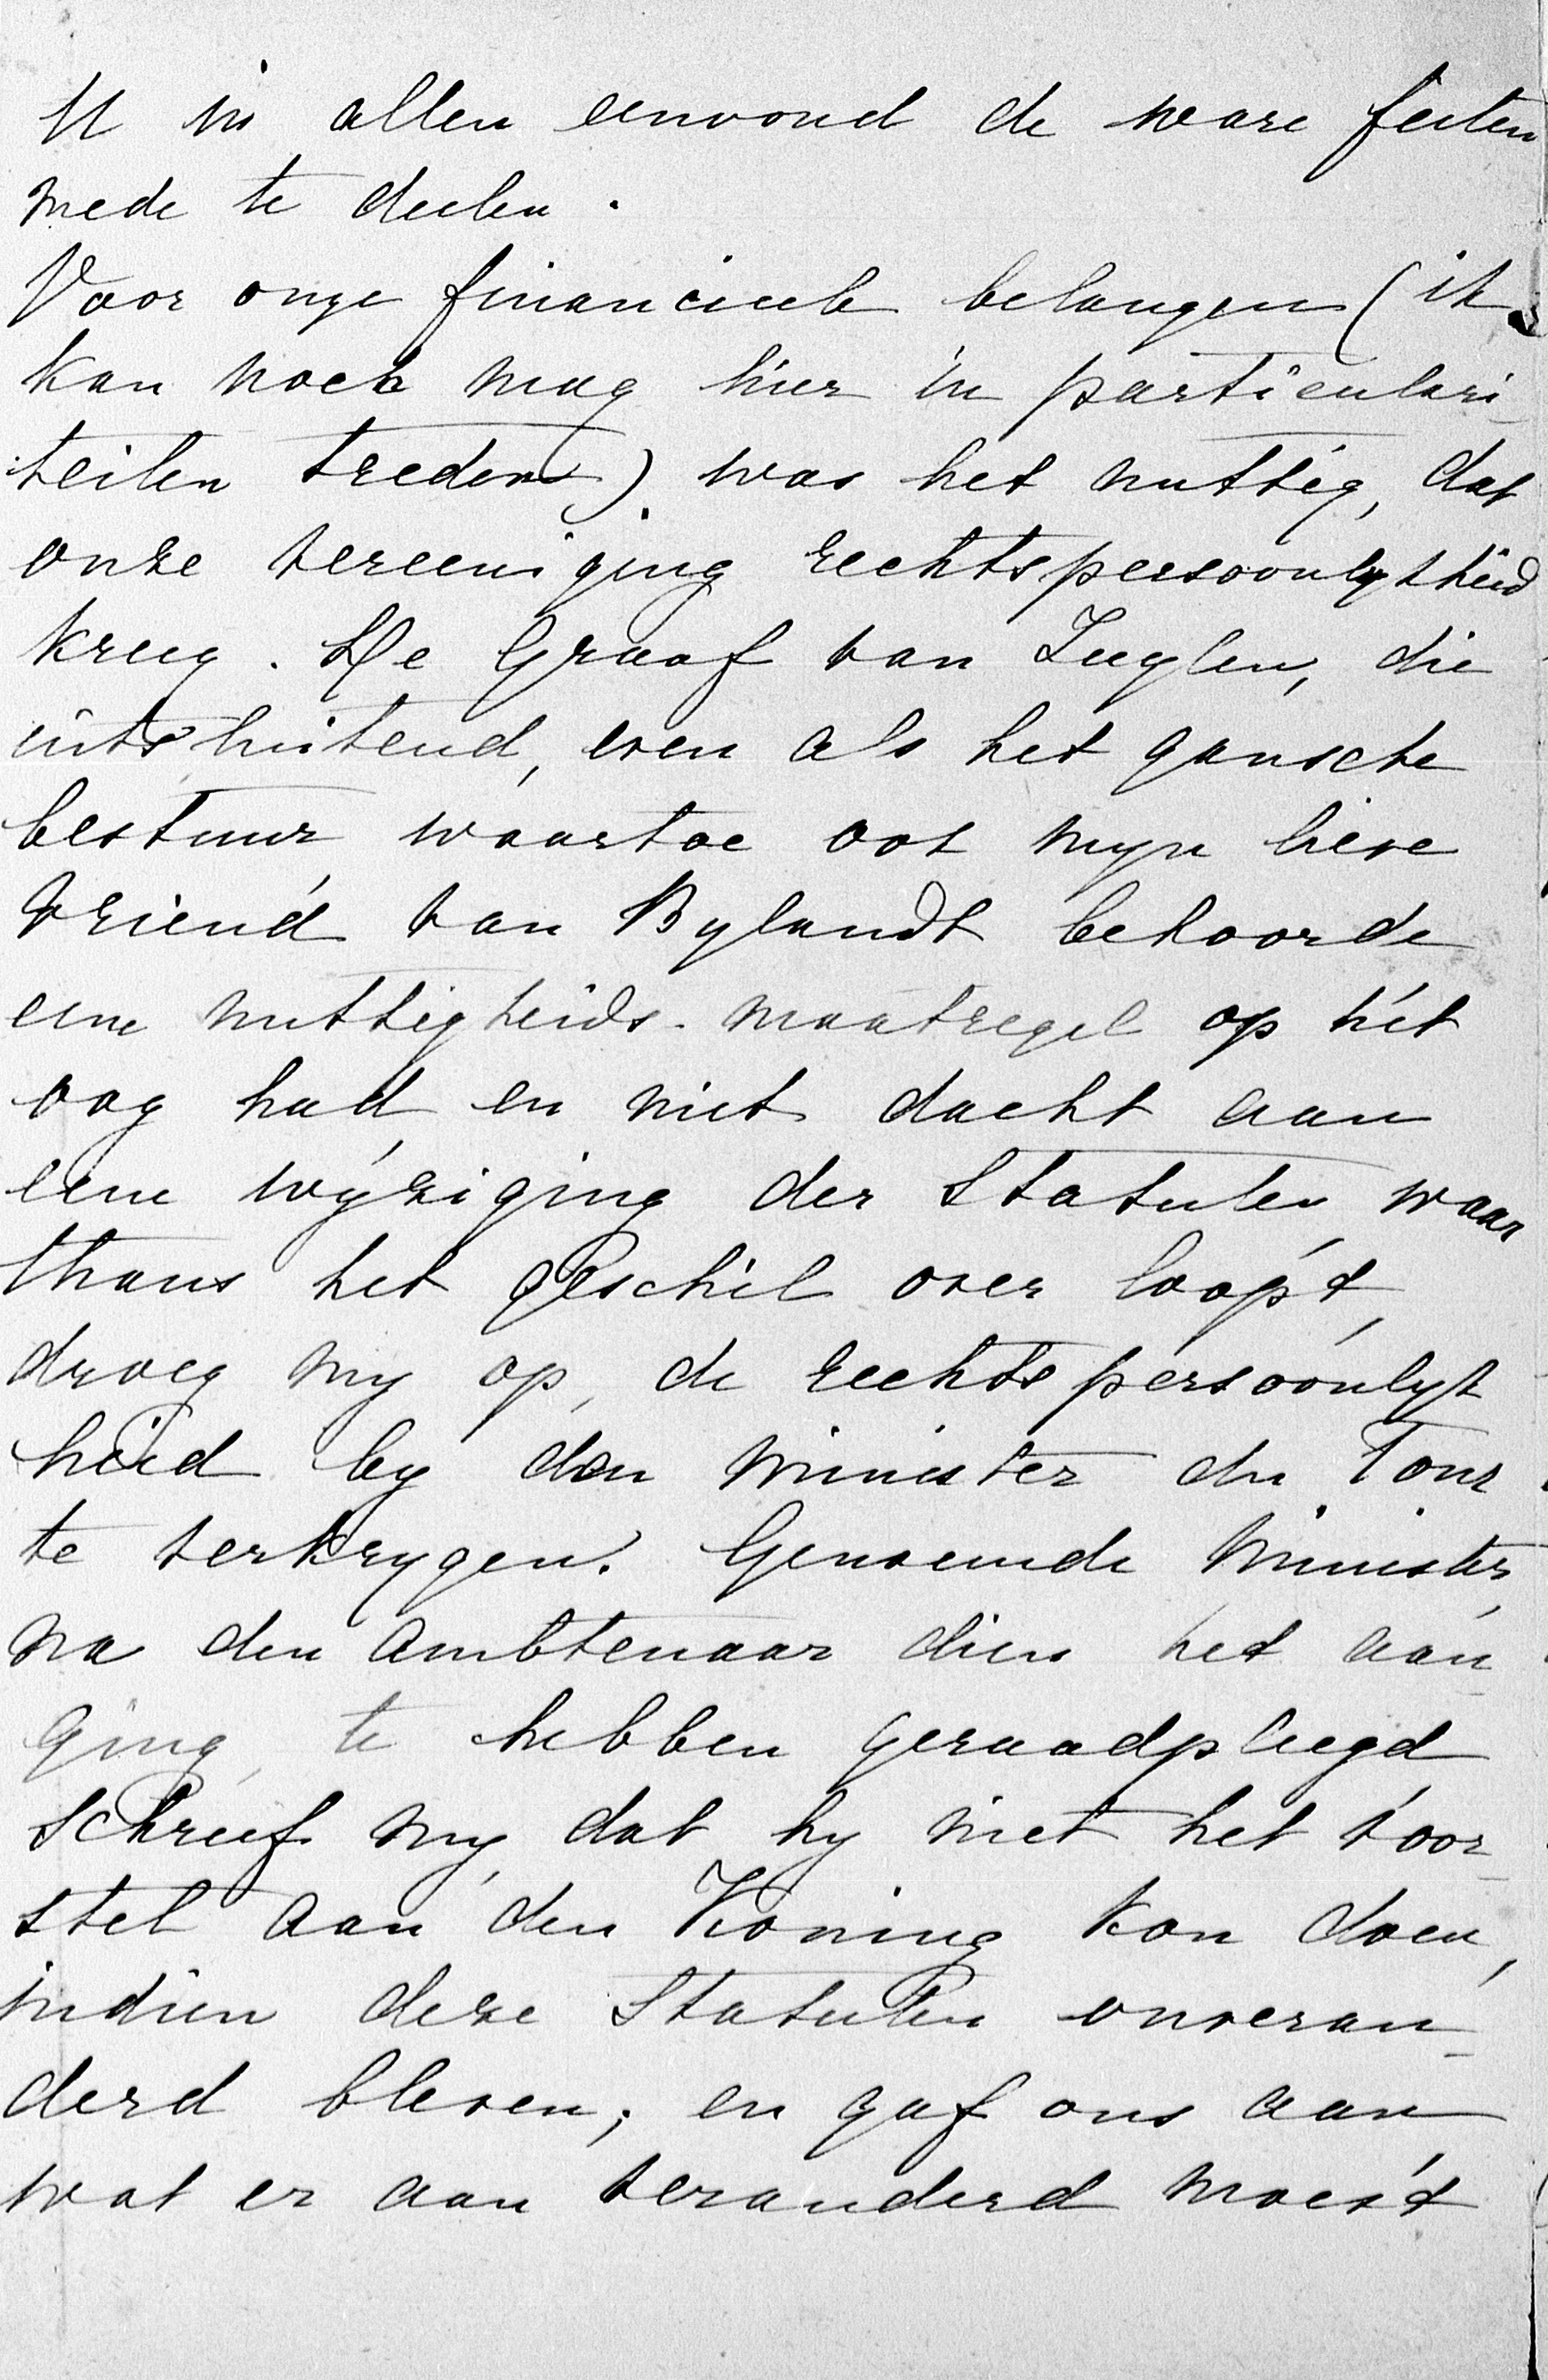 U in allen eenvoud de ware feiten
mede te deelen.
Voor onze financieele belangen (ik
kan noch mag hier in particulari-
teiten treden) was het nuttig, dat
onze vereeniging rechtspersoonlykheid
kreeg. De Graaf van Zuylen, die
uitsluitend, even als het gansche
bestuur waartoe ook myn lieve
vriend van Bylandt behoorde
eene nuttigheids-maatregel op het
oog had en niet dacht aan
eene wyziging der Statuten waar
thans het geschil over loopt,
droeg my op, de rechtspersoonlyk
heid by den Minister du Tour
te verkrygen. Genoemde Minister,
na den ambtenaar dien het aan-
ging, te hebben geraadpleegd
schreef my, dat hy niet het voor-
stel aan den Koning kon doen,
indien deze Statuten onveran-
derd bleven; en gaf ons aan
wat er aan veranderd moest